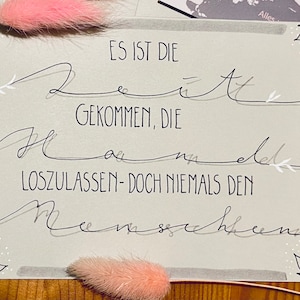 Alles
ES IST DIE
Zeit
GEKOMMEN, DIE
Hand
LOSZULASSEN - DOCH NIEMALS DEN
Menschen